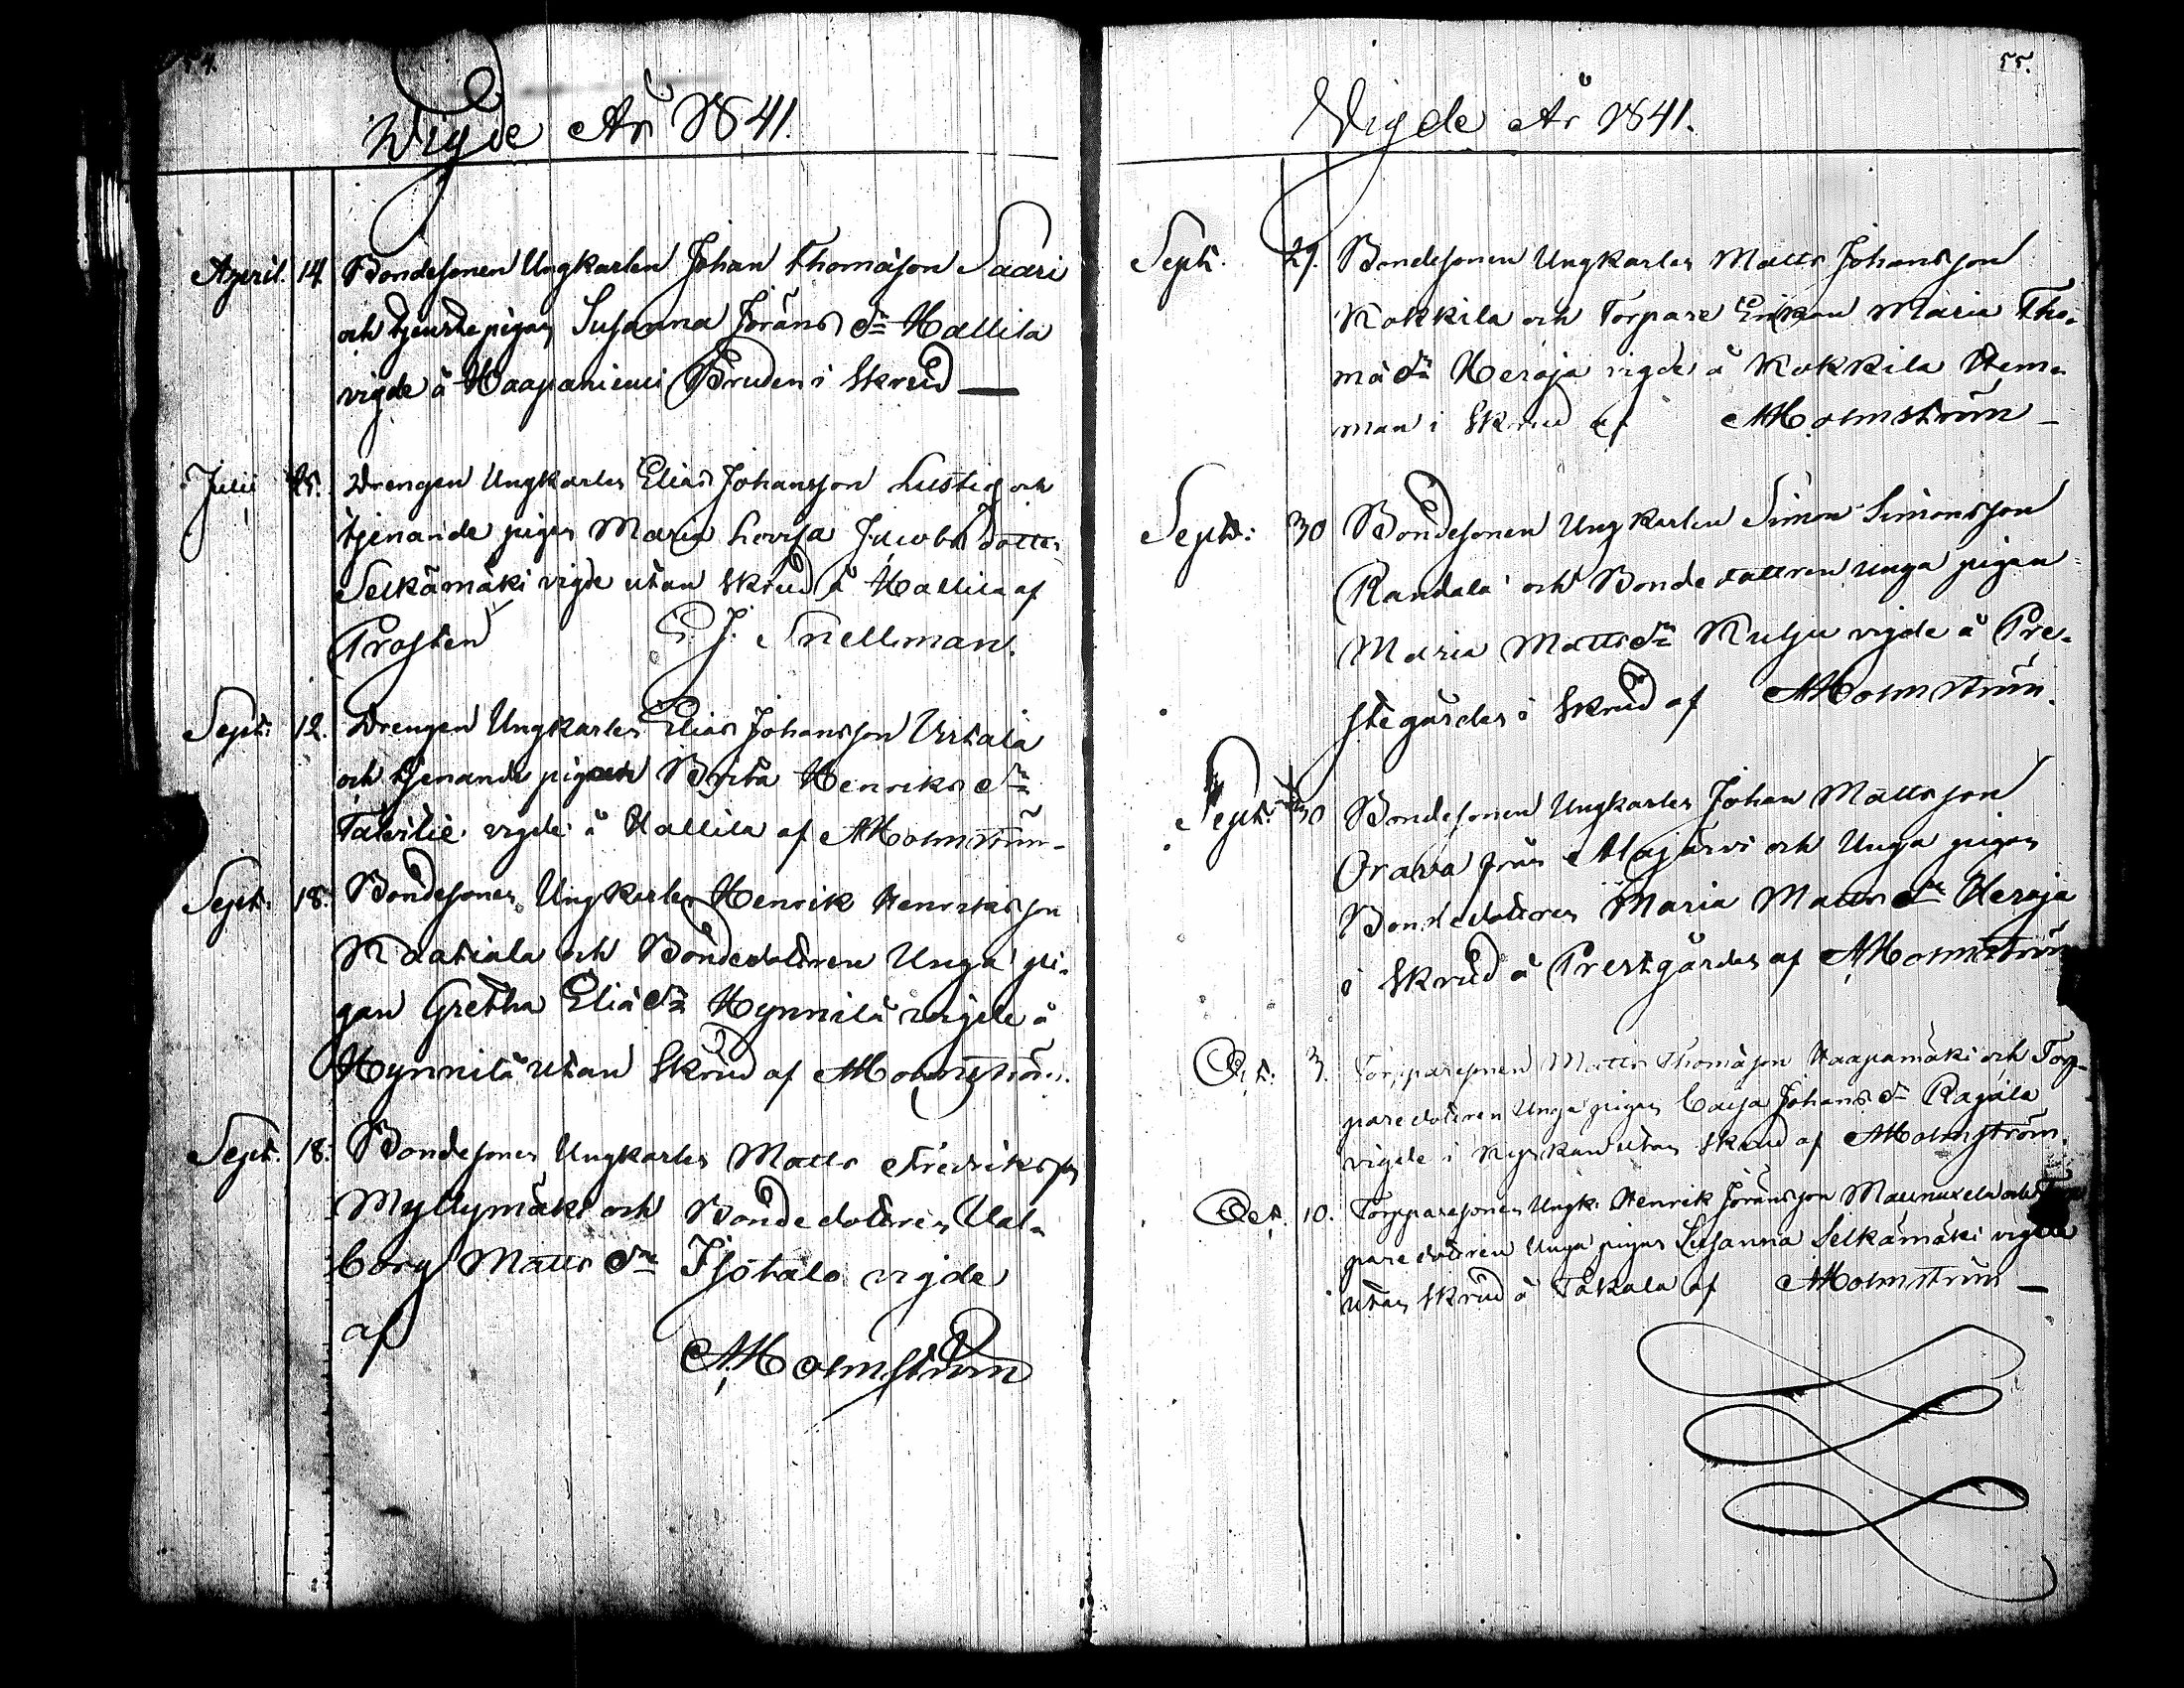 54.
Wigde År 1841.
April. 14. Bondesonen Ungkarlen Johan Thomasson Saari
och tjenstepigan Susanna Jöräns dr Hallila
vigde å Haapaniemi Bruden i skrud —
Julii 25. Drengen Ungkarlen Elias Johansson Lustig och
tjenande pigan Maria Lovisa Jacobs dotter
Selkämäki vigde utan skrud å Hallila af
Prosten E. J. Snellman.
Sept: 12. Drengen Ungkarlen Elias Johansson
och tjenande pigan Brita Henriks dr
vigde å Hallila af AHolmström-
Sept: 18: Bondesonen Ungkarlen Henrik Henriksson
Kaatiala och Bondedottren Unga pi-
gan Gretha Elia dr Hynnilä vigde å
Hynnilä utan Skrud af AHolmström.
Sept. 18: Bondesonen Ungkarlen Matts Fredriksson
Myllymäki och Bondedottren Val-
borg Matts dr Isotalo vigde
af AHolmström
55.
Vigde År 1841.
Sept. 29. Bondesonen Ungkarlen Matts Johansson
Kokkila och Torpare Enkan Maria Tho-
ma dr Heroja vigde å Kokkila Hem-
man i Skrud af AHolmström —
Sept: 30 Bondesonen Ungkarlen Simon Simonsson
Randala och Bondedottren unga pigan
Maria Matts dr Kulju vigde å Pre-
stegården i Skrud af AHolmström.
Sept: 30 Bondesonen Ungkarlen Johan Mattsson
Orava från Alajärvi och Unga pigan
Bondedottren Maria Matts dr Heroja
i Skrud å Prestgården af AHolmström
Oct. 3. Torparesonen Matts Thomasson Haapamäki och Tor-
paredottren Unga pigan Caisa Johans dr Rajala
vigde i Kyrkan utan skrud af AHolmström.
Oct. 10. Torparesonen Ungk. Henrik Jöransson Maunuxela och
paredottren Unga pigan Susanna Selkämäki vigde
utan skrud å Takala af AHolmström —